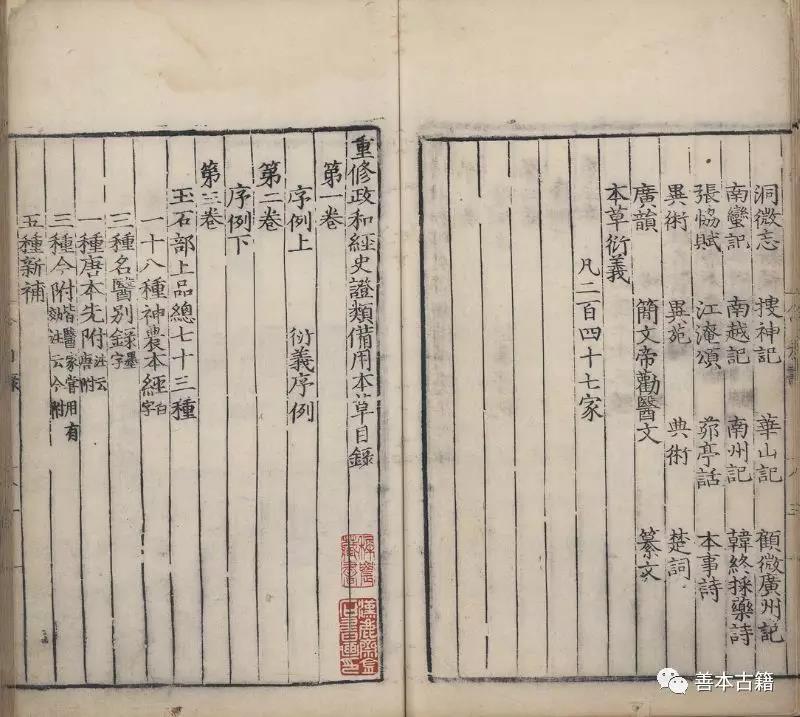 洞微志 搜神記 華山記 顧微廣州記
南蠻記 南越記 南州記 韓終採藥詩
張協賦 江淹頌 茆亭話 本事詩
異術 異苑 典術 楚詞
廣韻 簡文帝勸醫文 纂文
本草衍義
凡二百四十七家
重修政和經史證類備用本草目錄
第一卷
序例上 衍義序例
第二卷
序例下
第三卷
玉石部上品總七十三種
一十八種神農本經白字
三種名醫別錄墨字
一種唐本先附注云唐附
三種今附皆醫家嘗用有效注云今附
五種新補
善本古籍